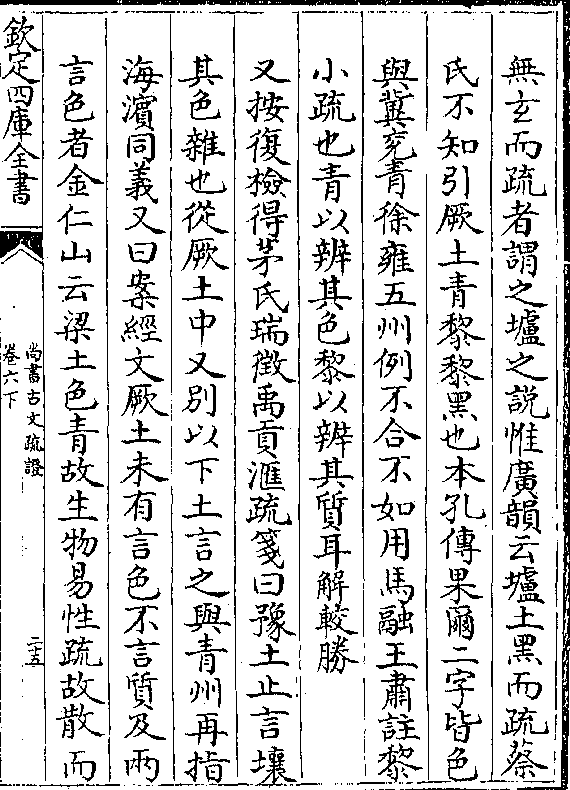 無玄而疏者謂之壚之說惟廣韻云壚土黑而疏蔡
氏不知引厥土青黎黎黑也本孔傳果爾二字皆色
與冀兗青徐雍五州例不合不如用馬融王肅註黎
小疏也青以辨其色黎以辨其質耳解較勝
又按復檢得茅氏瑞徵禹貢滙疏箋曰豫土止言壤
其色雜也從厥土中又別以下土言之與青州再指
海濵同義又曰案經文厥土未有言色不言質及兩
言色者金仁山云梁土色青故生物易性疏故散而
欽定四庫全書
尚書古文疏證
卷六下
二十五